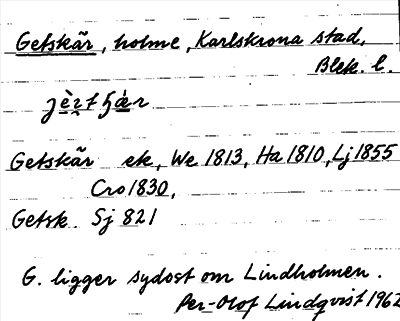 Getskär, holme, Karlskrona stad,
Blek. l.
Getskär ek, We 1813, Ha 1810, Lj 1855
Cro 1830,
Getsk Sj 821
G. ligger sydost om Lindholmen.
Per-Olof Lindqvist 1962